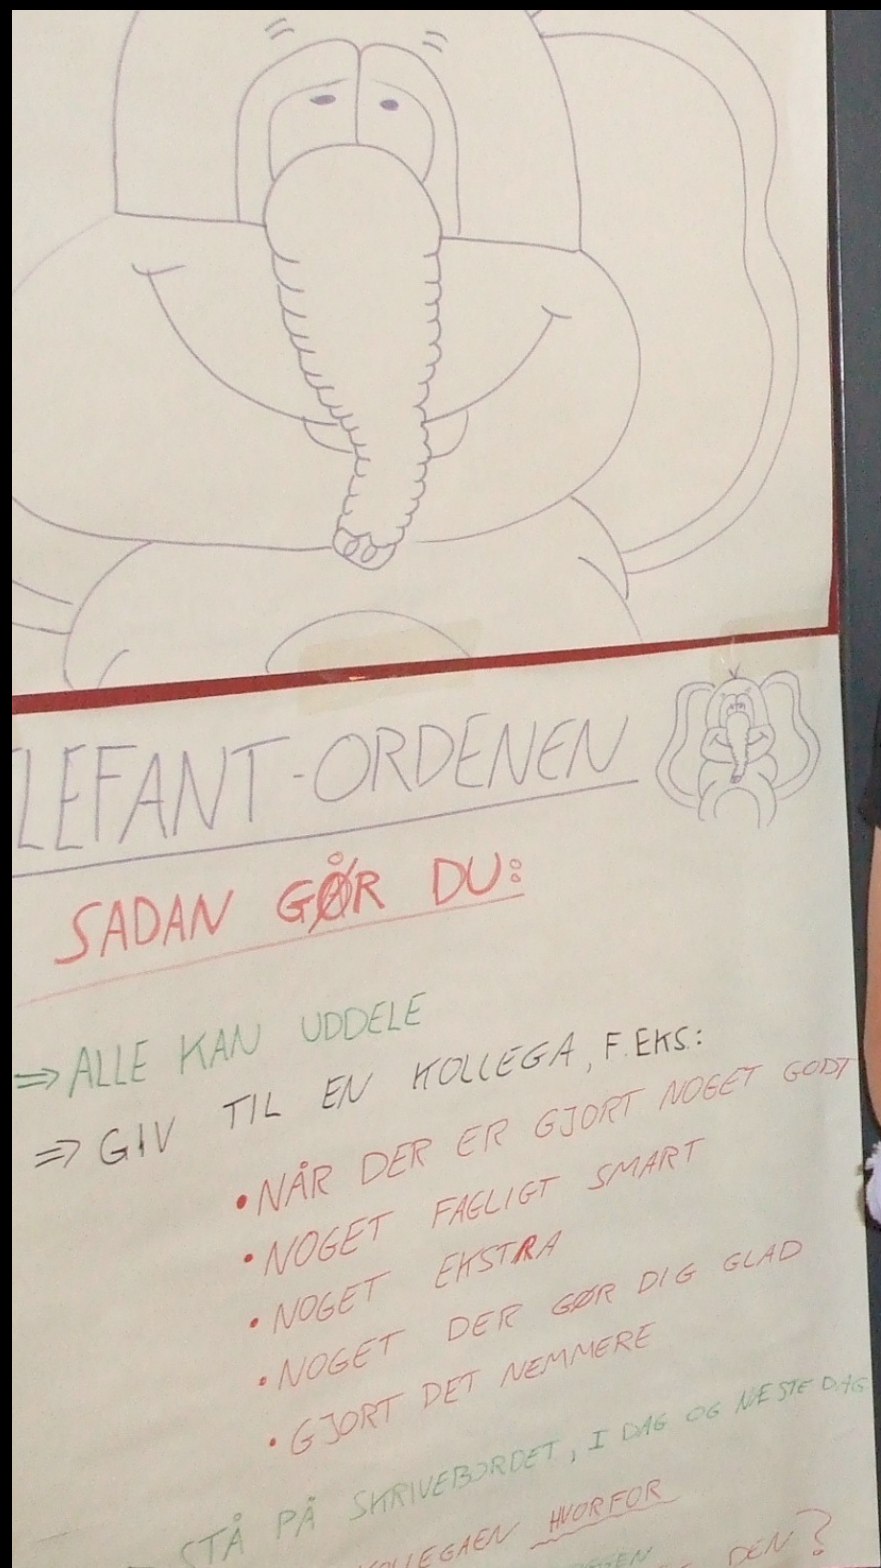 LEFANT-ORDENEN
SADAN GØR DU:
⇒ ALLE KAN UDDELE
⇒ GIV TIL EN KOLLEGA, F.EKS.:
• NÅR DER ER GJORT NOGET GODT
• NOGET FAGLIGT SMART
• NOGET EKSTRA
• NOGET DER GØR DIG GLAD
• GJORT DET NEMMERE
STÅ PÅ SKRIVEBORDET, I DAG OG NÆSTE DAG
KOLLEGAEN HVORFOR
DEN?